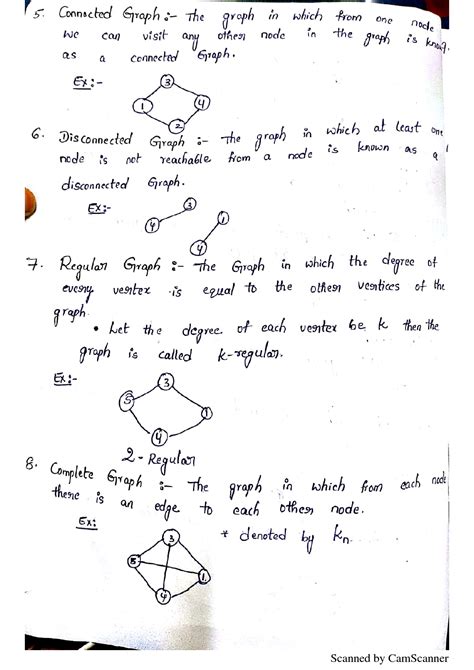 5. Connected Graph :- The graph in which from one node
we can visit any other node in the graph is known
as a connected Graph.
Ex :-
3
1
4
2
6. Disconnected Graph :- The graph in which at least one
node is not reachable from a node is known as a
disconnected Graph.
Ex:-
3
4
1
4
7. Regular Graph :- The Graph in which the degree of
every vertex is equal to the other vertices of the
graph.
• Let the degree of each vertex be k then the
graph is called k-regular.
Ex:-
3
5
1
4
2-Regular
8. Complete Graph :- The graph in which from each node
there is an edge to each other node.
Ex:
* denoted by Kn.
3
5
1
4
Scanned by CamScanner